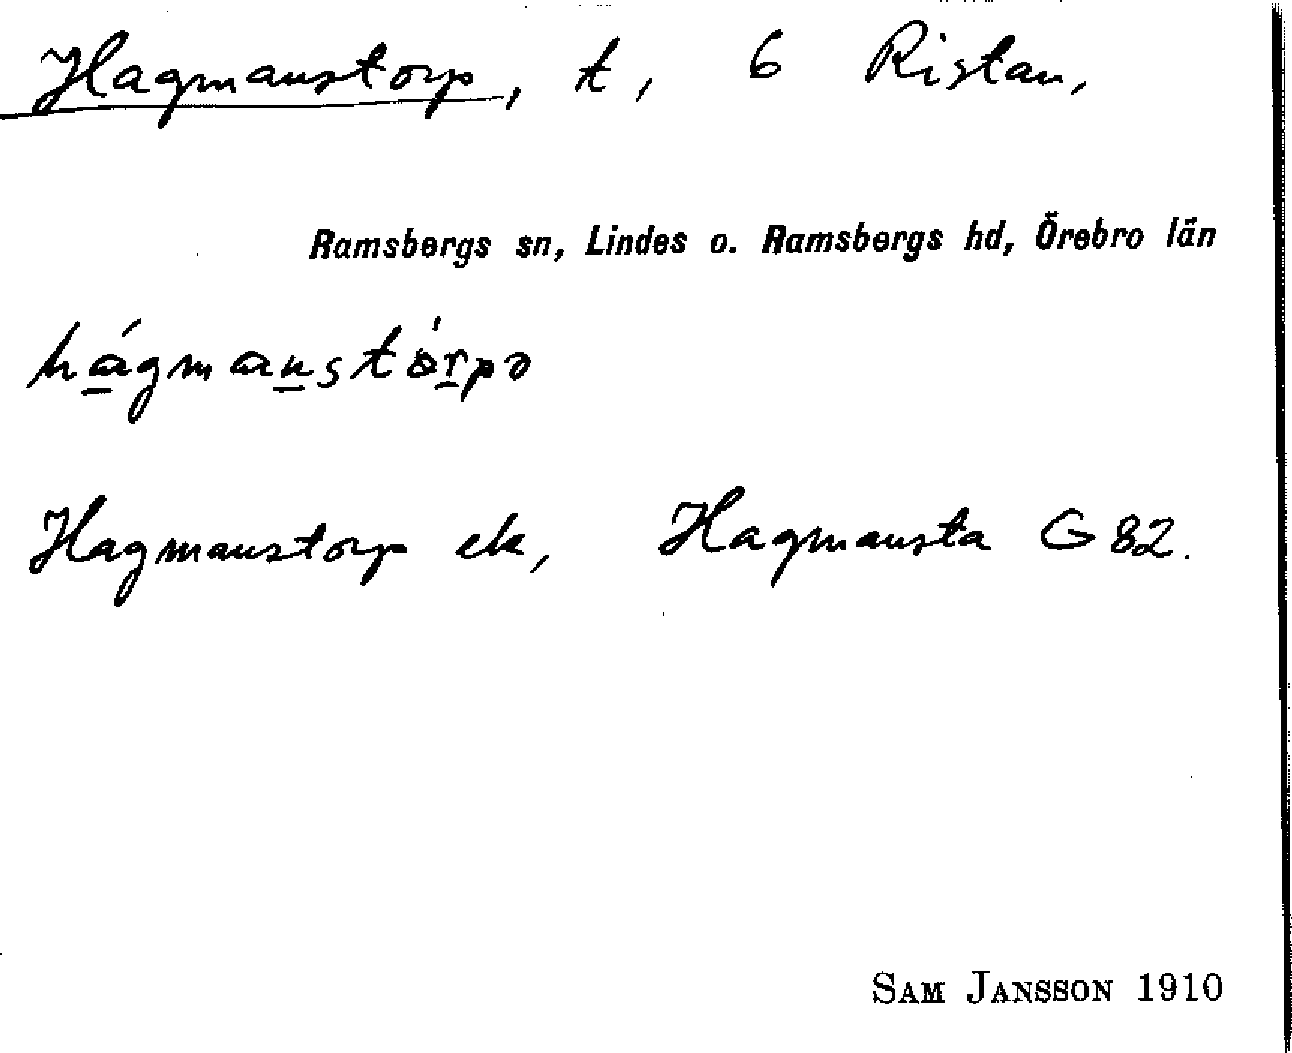 Hagmanstorp, t, 6 Ristan,
Ramsbergs sn, Lindes o. Ramsbergs hd, Örebro län
hágmanstórpə
Hagmanstorp ek, Hagmansta G 82.
SAM JANSSON 1910